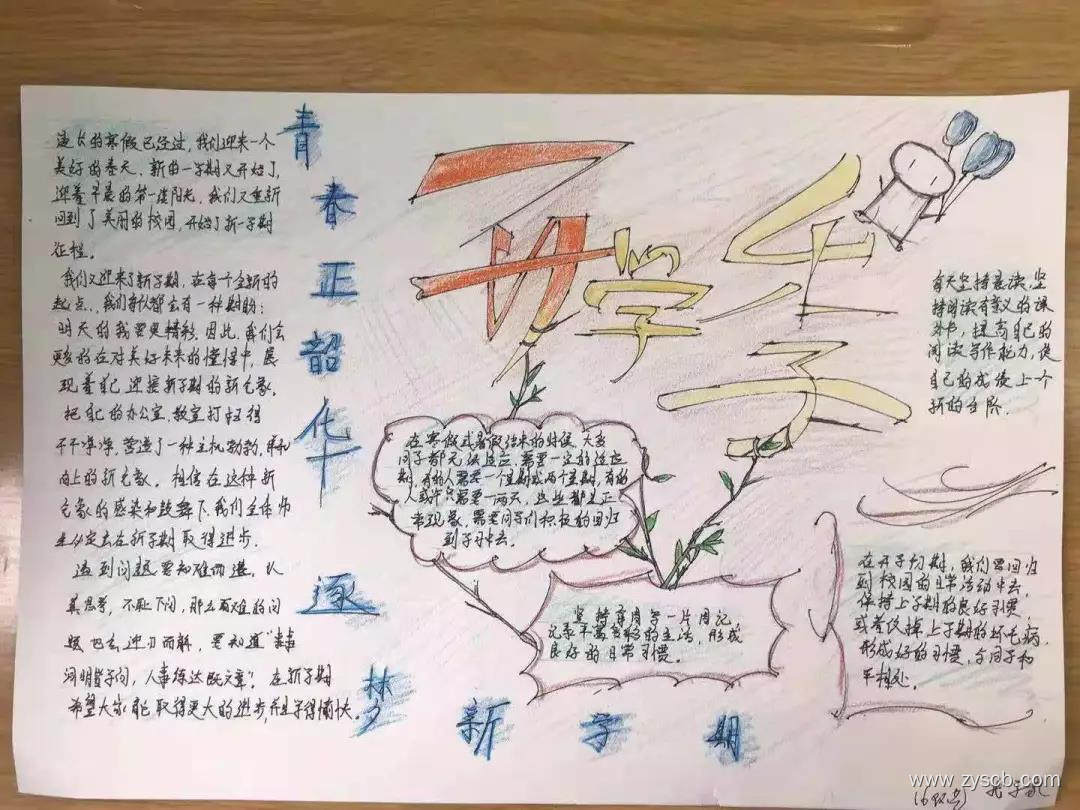 漫长的寒假已经过,我们迎来一个
美好的春天、新的一学期又开始了,
迎着早晨的第一缕阳光,我们又重新
回到了美丽的校园,开始了新一学期
征程。
我们又迎来了新学期,在每个全新的
起点,我们都会有一种期盼:
明天的我要更精彩,因此,我们会
更多的在对美好未来的憧憬中,展
现着自己迎接新学期的新气象。
把自己的办公室、教室打扫得
干干净净,营造了一种生机勃勃、
向上的新气象。相信在这种新
气象的感染和鼓舞下,我们全体师
生必定会在新学期取得进步。
遇到问题要知难而进,认
真思考,不耻下问,那么再难的问
题也会迎刃而解,要知道"
洞明皆学问,人事练达既文章"。在新学期
希望大家能取得更大的进步,并且学得愉快。
青春正韶华
逐梦
新学期
开学
生子
在寒假或暑假结束的时候,大多
同学都无法适应,需要一定的适应
期,有的人需要一个星期或两个星期,有的
人或许只需要一两天,这些都是正
常现象,需要同学们积极的回归
到学习中去。
坚持每周写一片周记,
记录下丰富多彩的生活,形成
良好的日常习惯。
每天坚持晨读,坚
持阅读有意义的课
外书,提高自己的
阅读写作能力,使
自己的成绩上一个
新的台阶.
在开学初期,我们要回归
到校园的日常活动中去,
保持上学期的良好习惯
或者改掉上学期的坏毛病,
形成好的习惯,与同学和
平相处。
www.zyscb.com